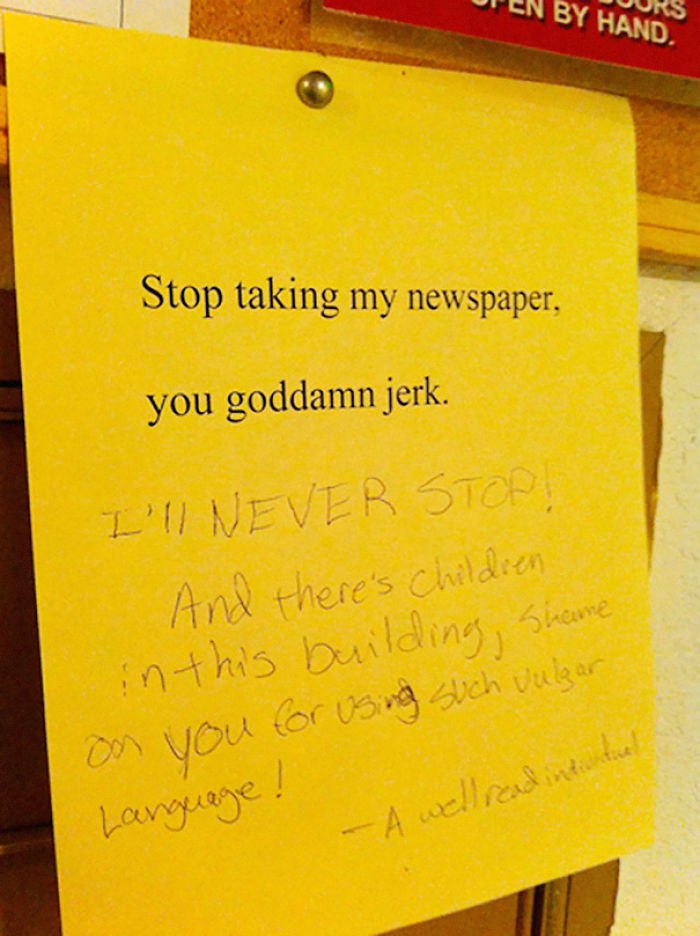 DOORS
OPEN BY HAND.
Stop taking my newspaper,
you goddamn jerk.
I'll NEVER STOP!
And there's children
in this building, Shame
on you for using such vulgar
Language!
—A well read individual